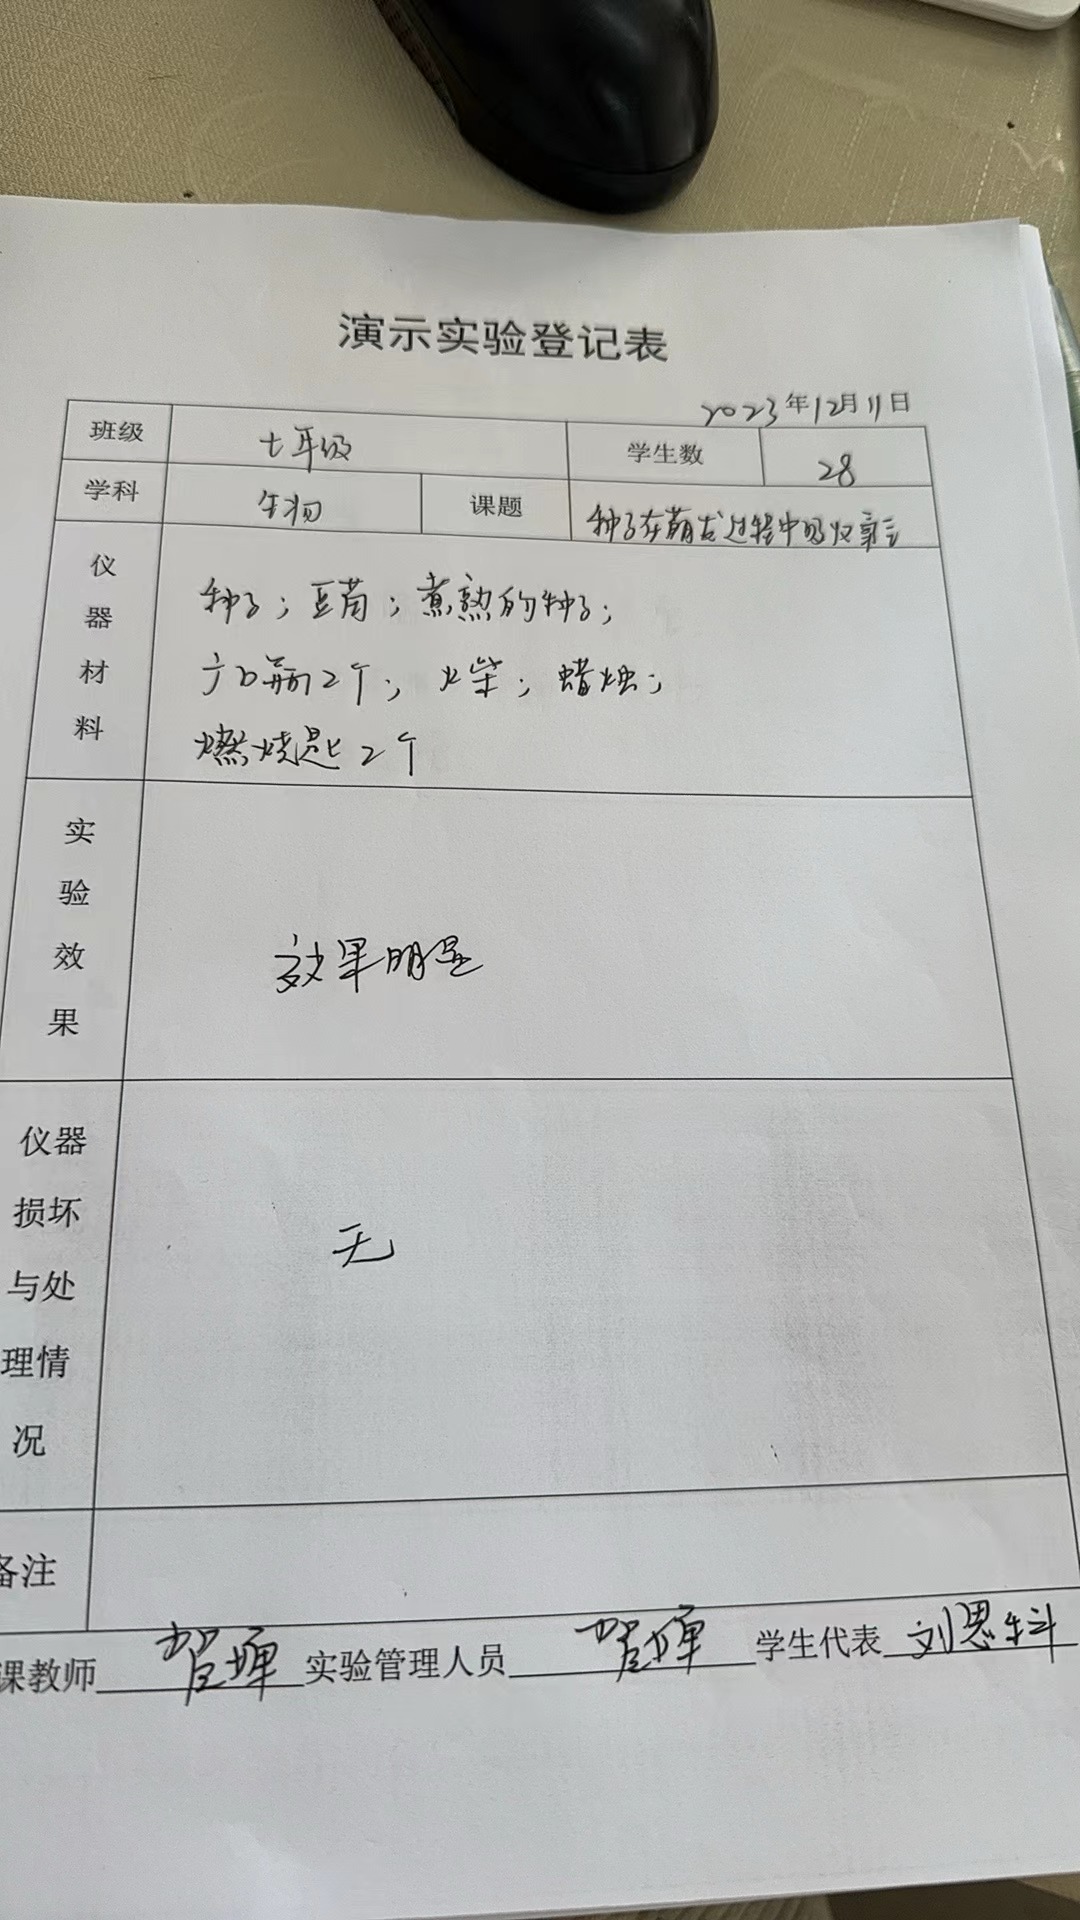 演示实验登记表
2023年12月11日
班级 七年级 学生数 28
学科 生物 课题 种子在萌发过程中吸收氧气
仪器材料 种子；豆苗；煮熟的种子；
广口瓶2个；火柴；蜡烛；
燃烧匙2个
实验效果 效果明显
仪器损坏与处理情况 无
备注
课教师 实验管理人员 学生代表 刘思